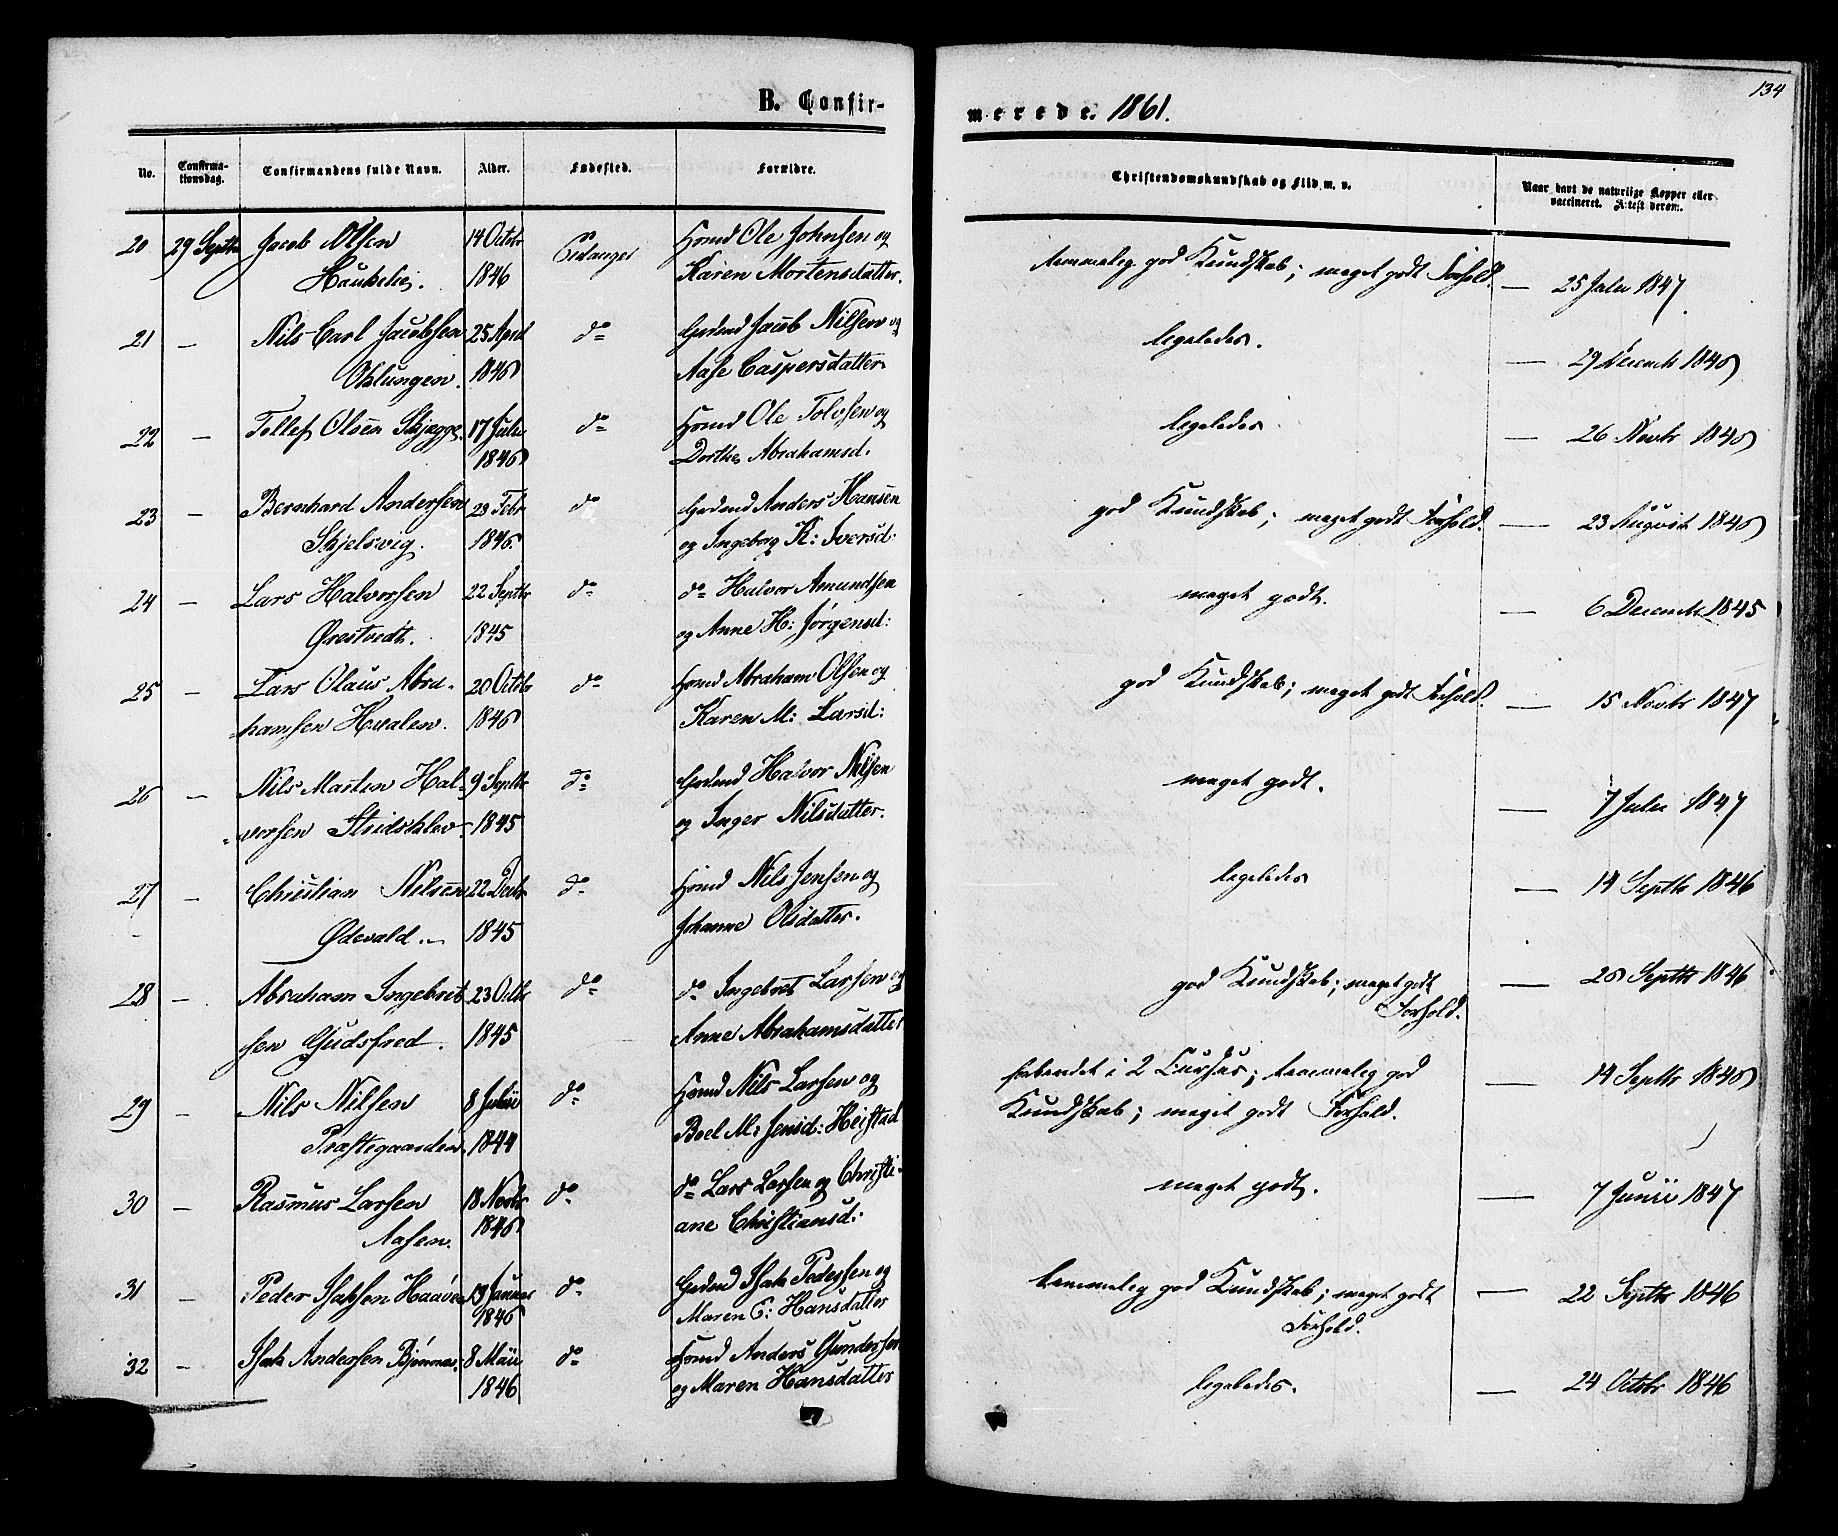 B. Confir-
merede. 1861.
134
No.
Confirma-
tionsdag.
Confirmandens fulde Navn.
Alder.
Fødested.
Forældre.
Christendomskundskab og Flid m. v.
Naar havt de naturlige Kopper eller
vaccineret. Attest derom.
20 29 Septbr Jacob Olsen 14 Octbr Eidanger Huusmd Ole Johnsen og temmelig god Kundskab; meget godt Forhold. — 25 Juli 1847
Haukelie. 1846 Karen Mortensdatter.
21 — Nils Carl Jacobsen 25 April do Gaardmd Jacob Nilsen og ligeledes. — 29 Decemb 1846
Oklungen. 1846 Aase Caspersdatter
22 — Tollef Olsen Skjegge. 17 Juli do Huusmd Ole Tolvsen og ligeledes — 26 Novbr 1846
1846 Dorthe Abrahamsd.
23 — Bernhard Andersen 23 Febr do Gaardmd Anders Hansen god Kundskab; meget godt Forhold. — 23 August 1846
Skjelsvig. 1846. og Ingeborg K: Iversd:
24 — Lars Halvorsen 22 Septbr do do Halvor Amundsen meget godt. — 6 Decemb 1845
Ørestvedt. 1845 og Anne H: Jørgensd:
25 — Lars Olaus Abra- 20 Octbr do Huusmd Abraham Olsen og god Kundskab; meget godt Forhold. — 15 Novbr 1847
hamsen Hvalen. 1846 Karen M: Larsd:
26 — Nils Martin Hal- 9 Septbr do Gaardmd Halvor Nilsen meget godt. — 7 Juli 1847
vorsen Stridsklev. 1845 og Inger Nilsdatter.
27 — Christian Nilsen 22 Decbr do Huusmd Nils Jensen og ligeledes — 14 Septbr 1846
Ødevald. 1845 Johanne Olsdatter.
28 — Abraham Ingebret- 23 Octbr do do Ingebret Larsen og god Kundskab; meget godt — 26 Septbr 1846
sen Gudsfred. 1845 Anne Abrahamsdatter Forhold.
29 — Nils Nilsen 8 Julii do Huusmd Nils Larsen og forberedet i 2 Cursus; temmelig god — 14 Septbr 1846
Præstegaarden. 1844 Boel M: Jensd: Heistad Kundskab; meget godt Forhold.
30 — Rasmus Larsen 18 Novbr do do Lars Larsen og Christi- meget godt. — 7 Junii 1847
Aasen. 1846 ane Christiansd:
31 — Peder Isaksen Haave 19 Januar do Gaardmd Isak Pedersen og temmelig god Kundskab; meget godt — 22 Septbr 1846
1846 Maren E: Hansdatter Forhold.
32 — Isak Andersen Bjønnes. 8 Maii do Huusmd Anders Gundersen ligeledes. — 24 Octbr 1846
1846 og Maren Hansdatter